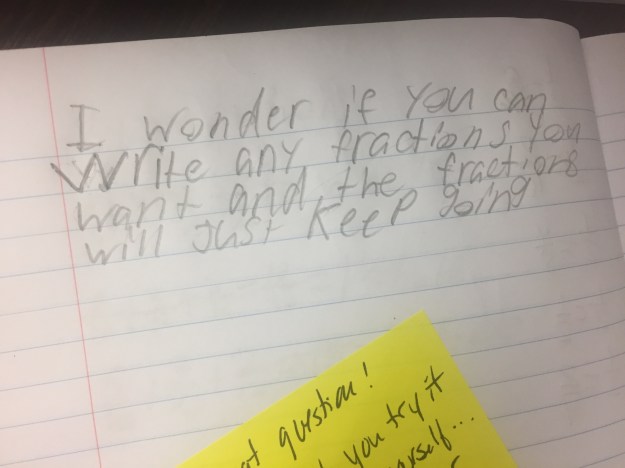 I wonder if you can
Write any fractions you
want and the fractions
will just keep going
question!
you try it